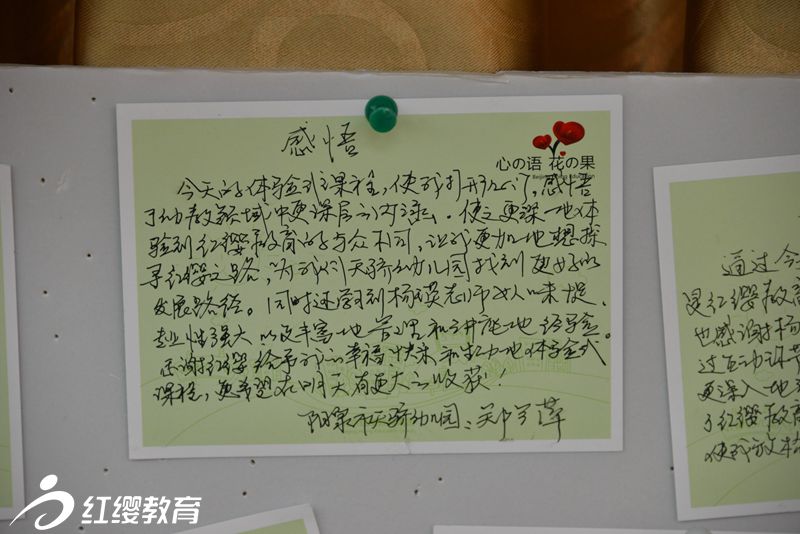 感悟
心の语 花の果
今天的体验式课程,使我打开心门,感悟
了幼教领域中更深层的内涵。使之更深一地体
验到红缨教育的与众不同,让我更加地想探
寻红缨之路,为我们天骄幼儿园找到更好的
发展路径。同时还学到杨瑛老师
专业性强大以及丰富地管理和讲授地经验。
感谢红缨给予我的幸福快乐和生动地体验式
课程,更希望在明天有更大的收获!
阳泉市天骄幼儿园:郑
通过今
灵红缨教育
也感谢杨
过互动环节
更深入地
了红缨教育
使我放
红缨教育